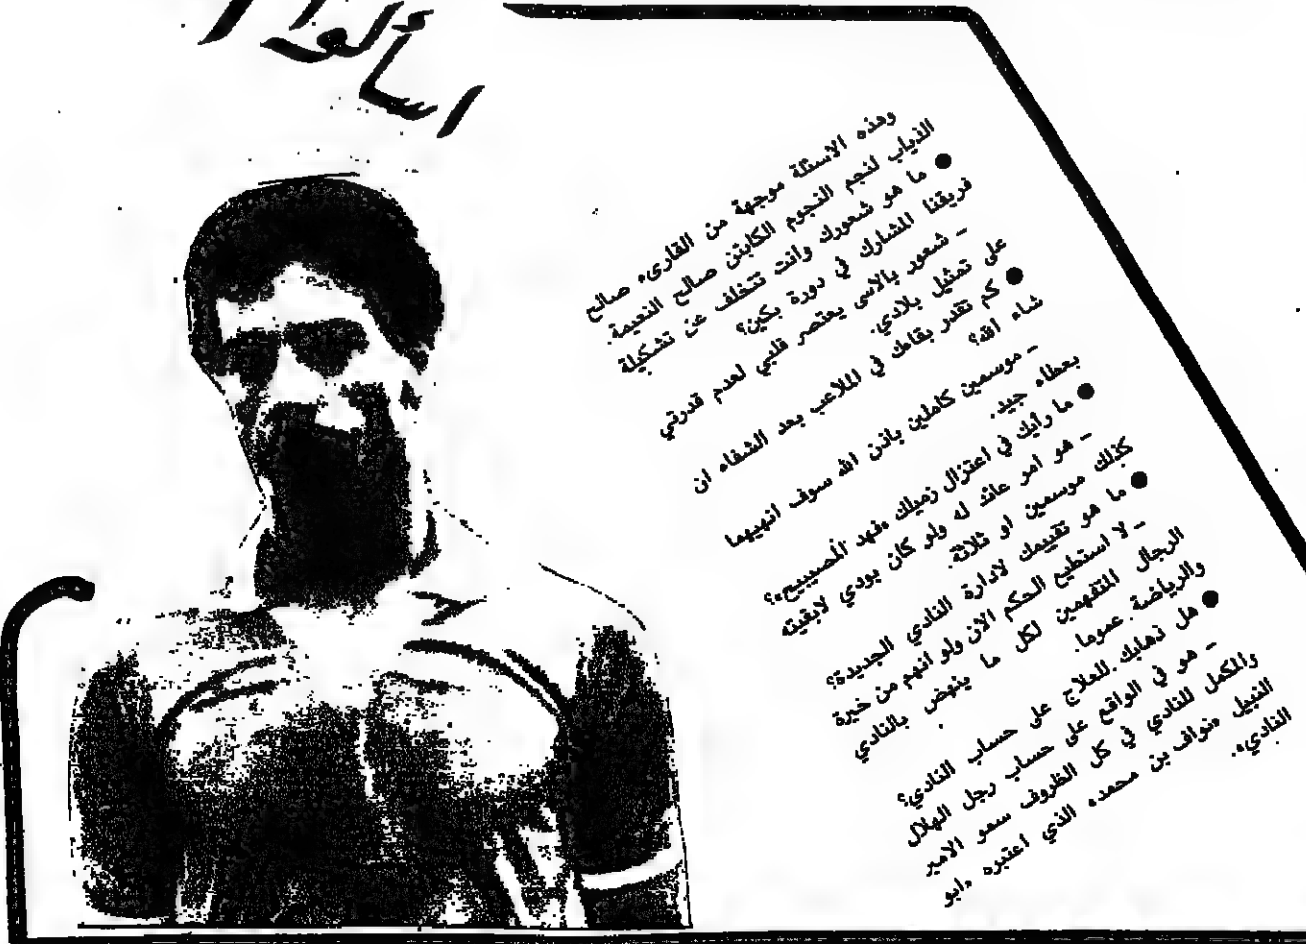 اسألوا
وهذه الاسئلة موجهة من القارىء صالح
الذياب لنجم النجوم الكابتن صالح النعيمة.
● ما هو شعورك وانت تتخلف عن تشكيلة
فريقنا المشارك في دورة بكين؟
ـ شعور بالاسى يعتصر قلبي لعدم قدرتي
على تمثيل بلادي.
● كم تقدر بقاءك في الملاعب بعد الشفاء ان
شاء الله؟
ـ موسمين كاملين باذن الله سوف انهيهما
بعطاء جيد.
● ما رأيك في اعتزال زميلك «فهد المصيبيح»؟
ـ هو امر عائد له ولو كان بودي لابقيته
كذلك موسمين او ثلاثة.
● ما هو تقييمك لادارة النادي الجديدة؟
ـ لا استطيع الحكم الان ولو انهم من خيرة
الرجال المتفهمين لكل ما ينهض بالنادي
والرياضة عموما.
● هل ذهابك للعلاج على حساب النادي؟
ـ هو في الواقع على حساب رجل الهلال
والمكمل للنادي في كل الظروف سمو الامير
النبيل «نواف بن محمد» الذي اعتبره «ابو
النادي».